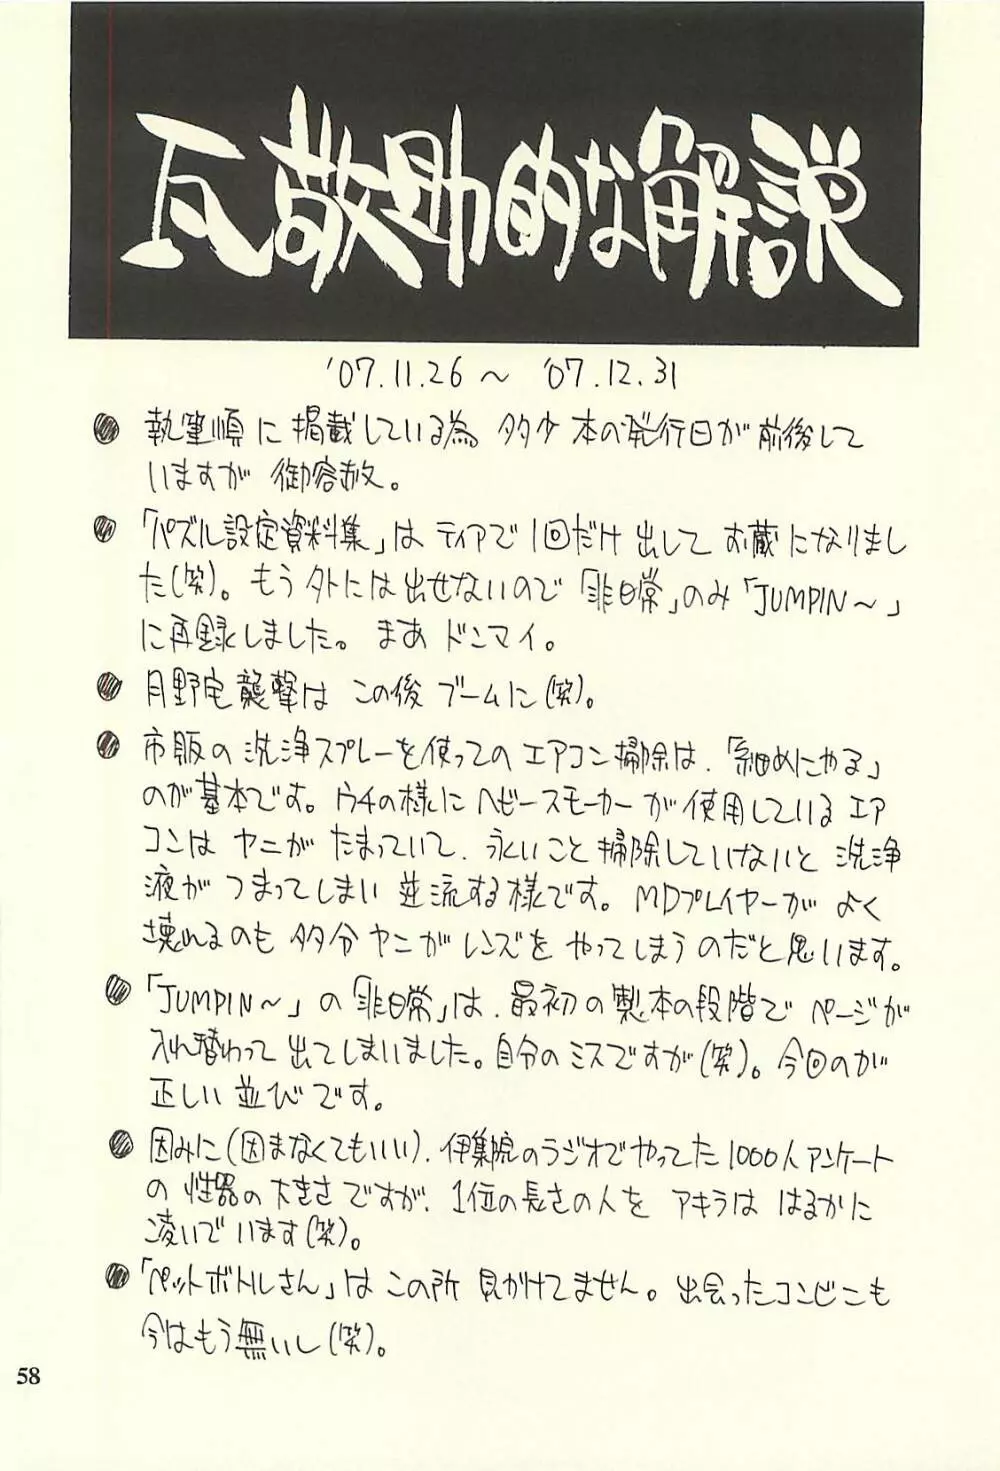 瓦敬助的な解説
'07.11.26～'07.12.31
● 執筆順に掲載している為、多少本の発行日が前後して
いますが御容赦。
● 「パズル設定資料集」はティアで1回だけ出してお蔵になりまし
た(笑)。もう外には出せないので「非日常」のみ「JUMPIN～」
に再録しました。まあドンマイ。
● 月野宅襲撃はこの後ブームに(笑)。
● 市販の洗浄スプレーを使ってのエアコン掃除は、「細めにやる」
のが基本です。ウチの様にヘビースモーカーが使用しているエア
コンはヤニがたまっていて、永いこと掃除していけないと洗浄
液がつまってしまい逆流する様です。MDプレイヤーがよく
壊れるのも多分ヤニがレンズをやってしまうのだと思います。
● 「JUMPIN～」の「非日常」は、最初の製本の段階でページが
入れ替わって出てしまいました。自分のミスですが(笑)。今回のが
正しい並びです。
● 因みに(因まなくてもいい)、伊集院のラジオでやってた1000人アンケート
の性器の大きさですが、1位の長さの人をアキラははるかに
凌いでいます(笑)。
● 「ペットボトルさん」はこの所見かけてません。出会ったコンビニも
今はもう無いし(笑)。
58